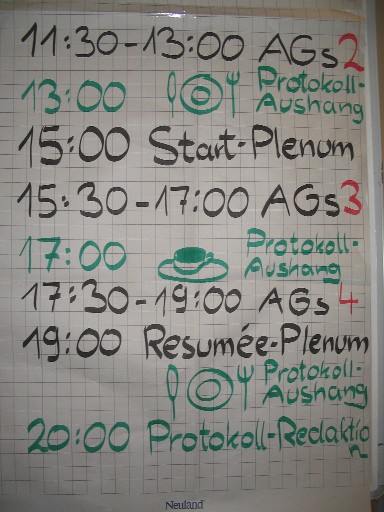 11:30-13:00 AGs 2
13:00 Protokoll-
Aushang
15:00 Start-Plenum
15:30-17:00 AGs 3
17:00 Protokoll-
Aushang
17:30-19:00 AGs 4
19:00 Resumée-Plenum
Protokoll-
Aushang
20:00 Protokoll-Redaktio
n
Neuland